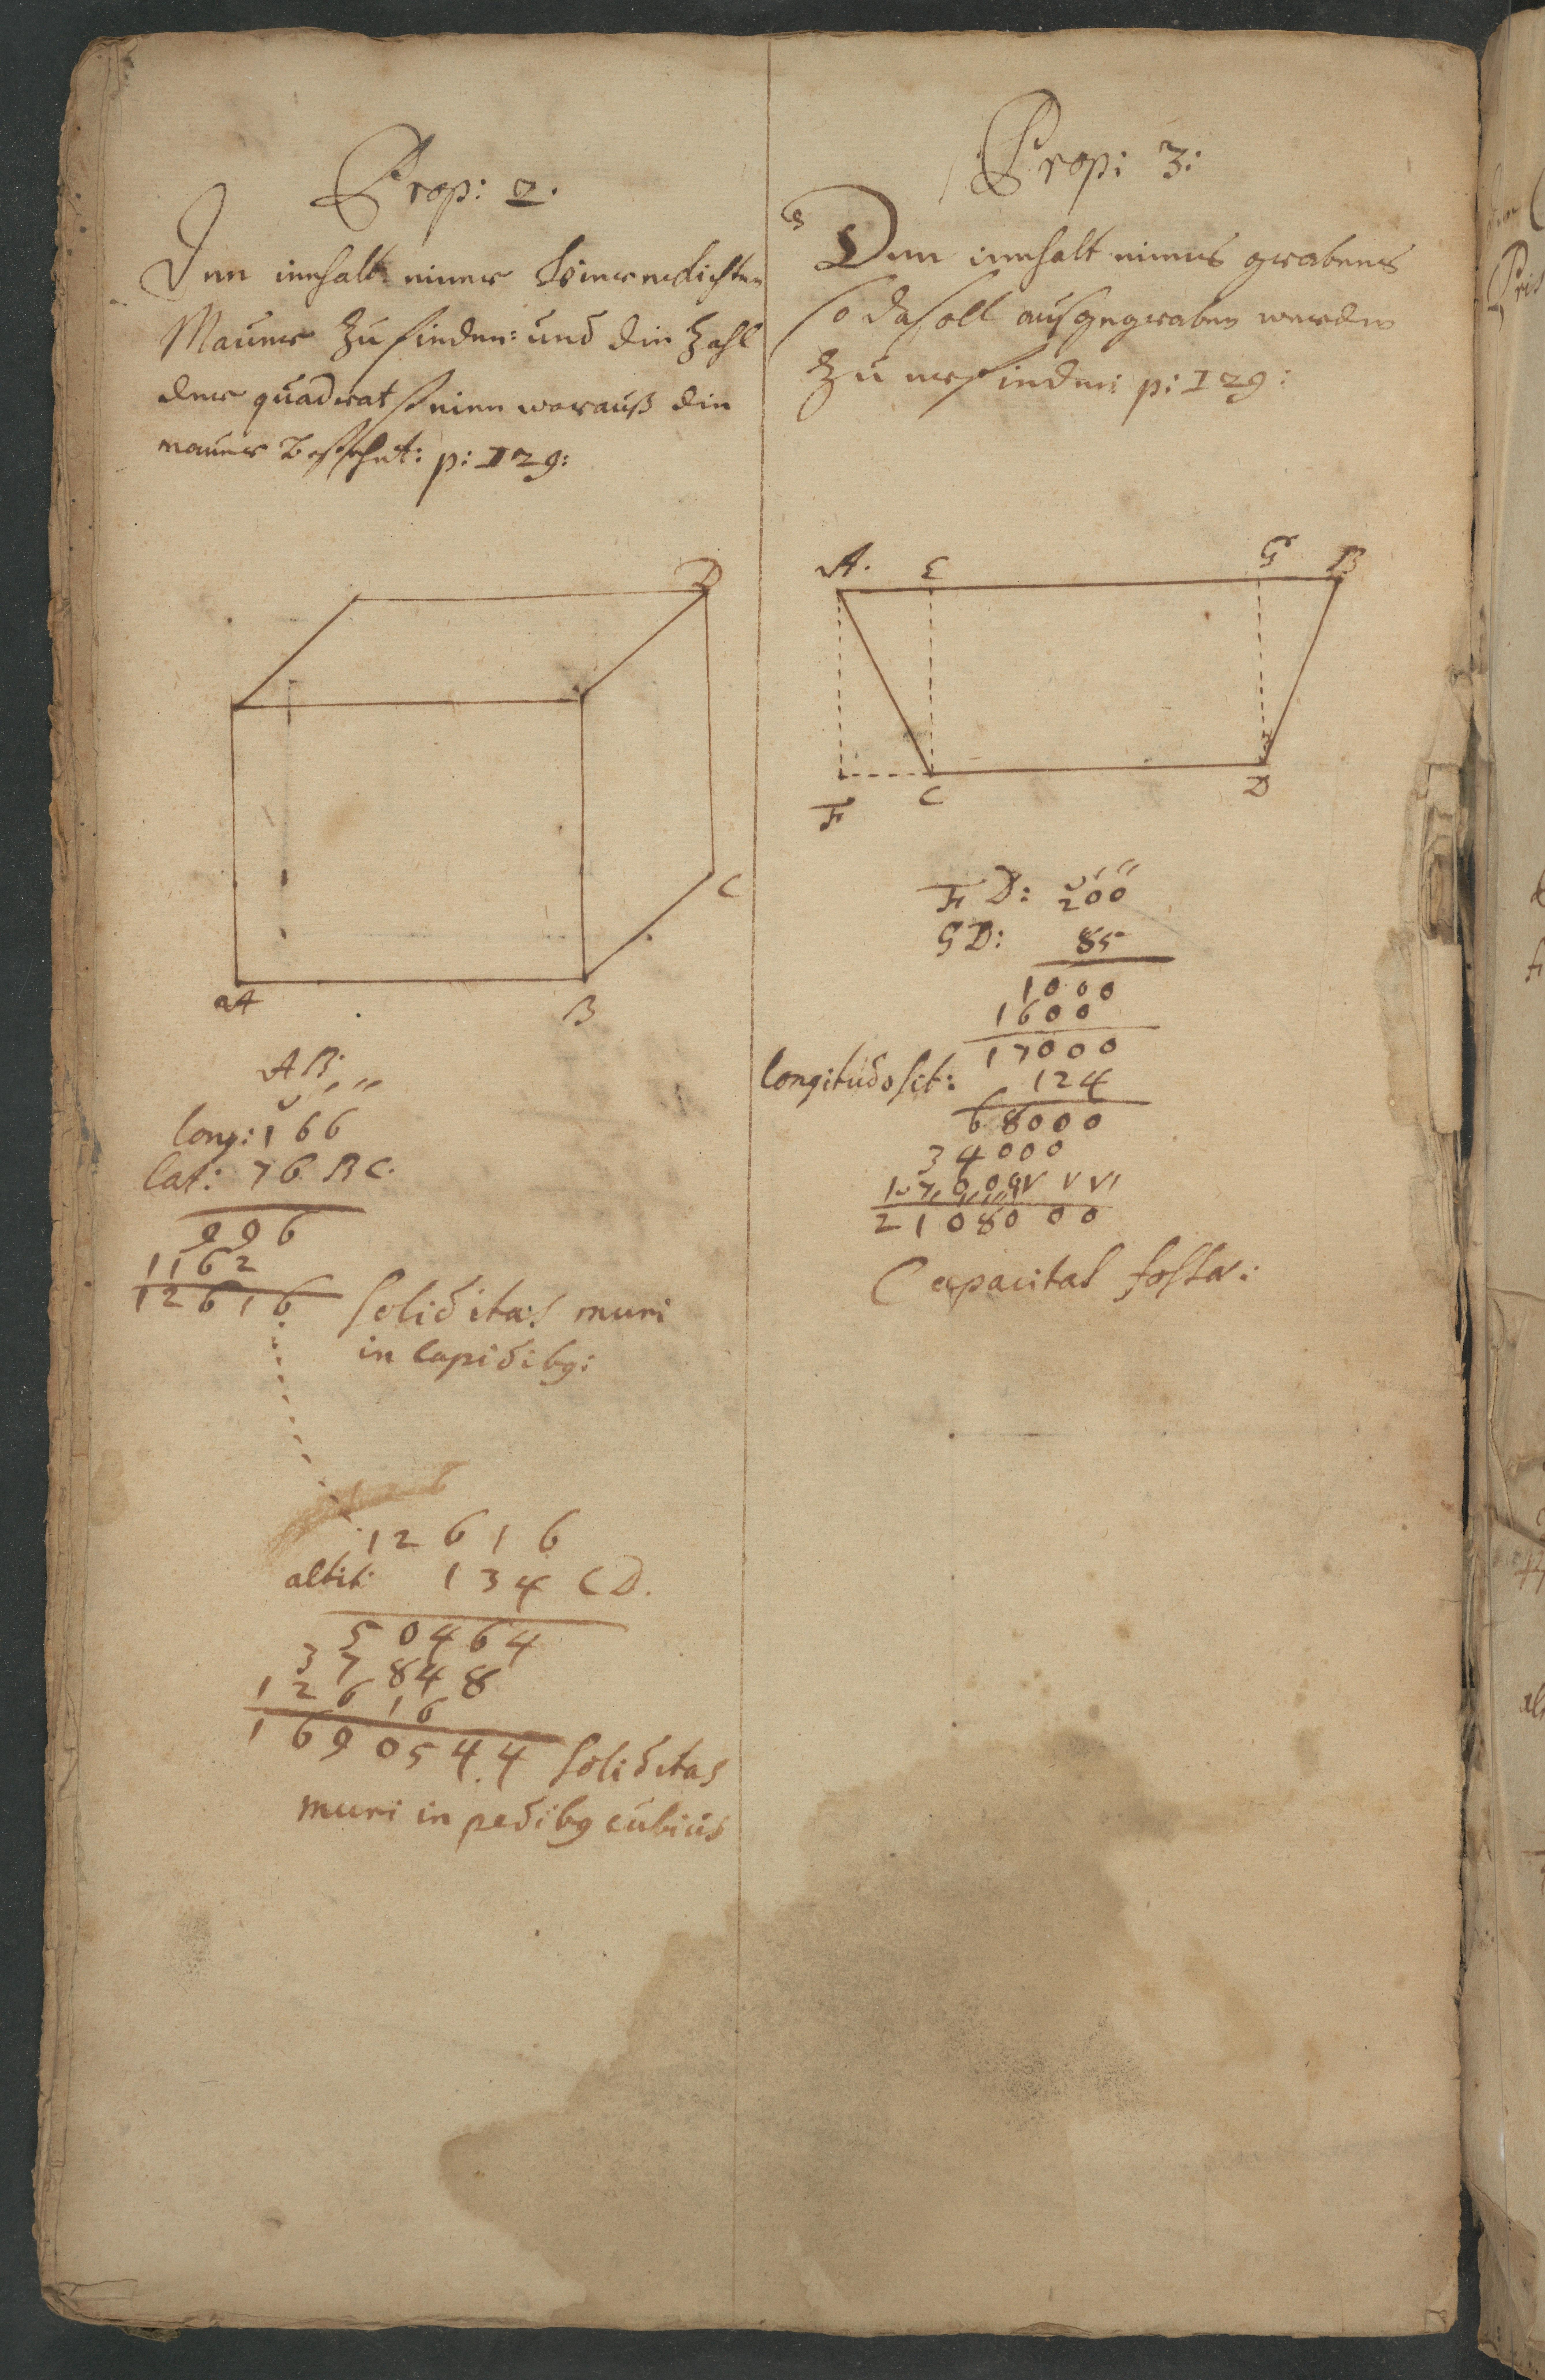 Prop: 2.
Den innhalt einer Viereckichten
Mauer zu finden: und die Zahl
der quadrat steine worauß die
mauer bestehet: p: 129:
D
C
A
B
AB:
long: 166
lat: 76 BC.
996
1162
12616 soliditas muri
in lapidibq:
12616
altit: 134 CD.
50464
37848
12616
1690544 soliditas
muri in pedibq cubicis
Prop: 3:
Den innhalt eines grabens
so da soll ausgegraben werden
zu erfinden p: 129:
A. E G B
F C D
FD: 200
GD: 85
1000
1600
17000
longitudo sit: 124
68000
34000
17000
2108000
Capacitas fossæ: